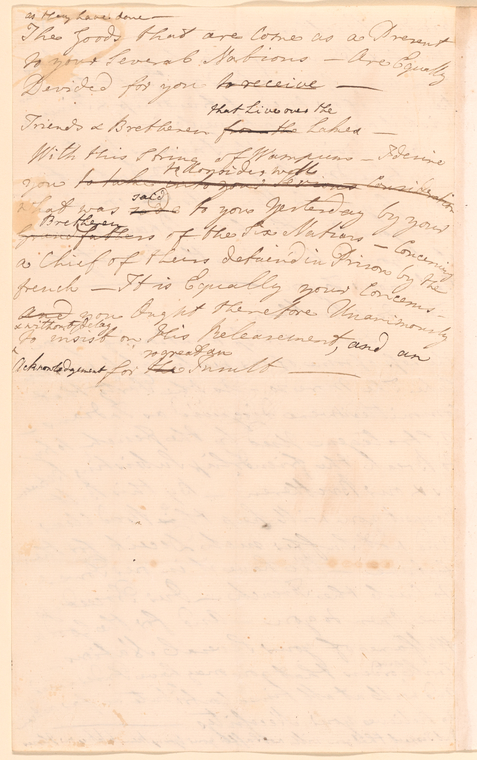 as they have done —
The Goods that are Come as a Present
to your Several Nations — Are Equally
Devided for you to receive —
that Live over the
Friends & Bretheren from the Lakes —
With this String of Wampum — I desire
to Consider well
you to take into your Serious Consideration
said
what was made to you Yesterday by your
Bretheren
Grandfathers of the Six Nations — Concerning
a Chief of theirs detaind in Prison by the
french — It is Equally your Concerns —
and you Ought therefore Unanimously
& without delay
to insist on this Releasement, and an
so great an
Acknowledgement for the Insult —